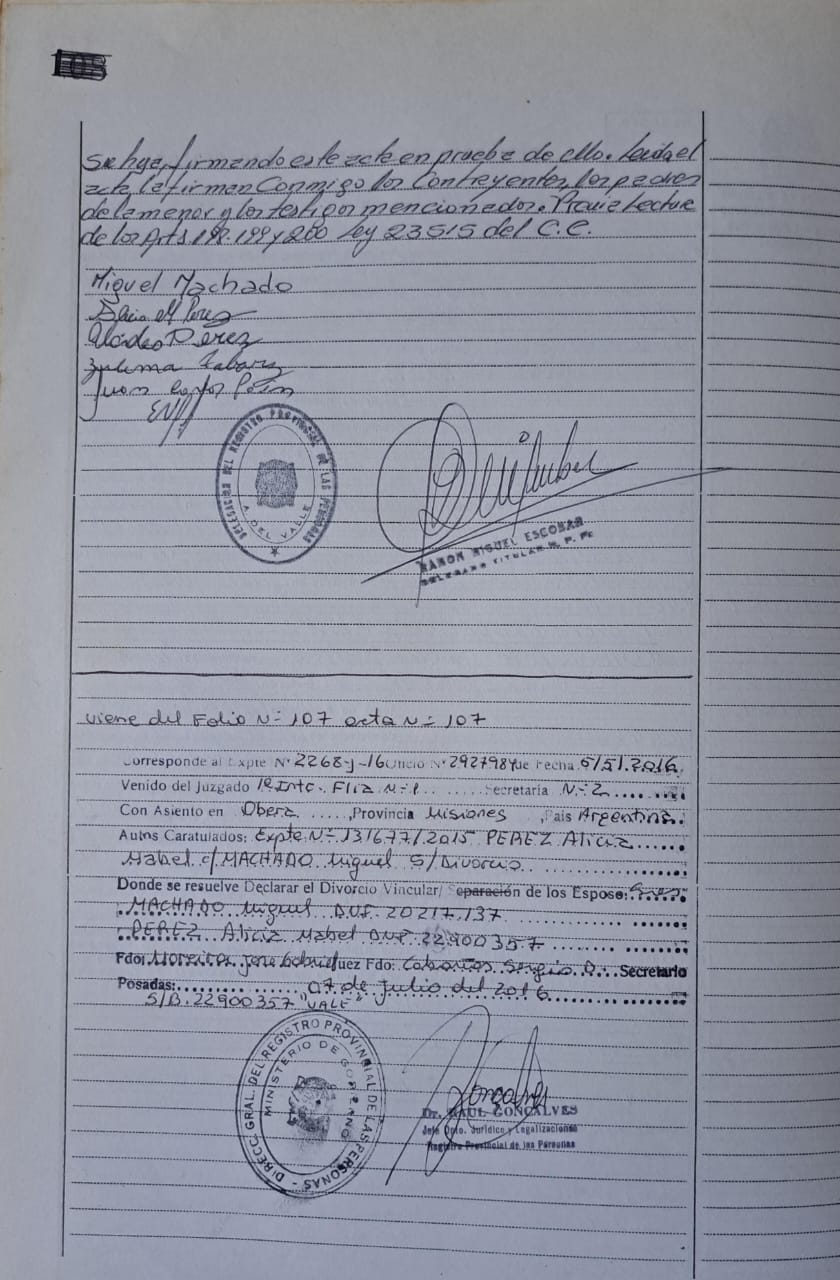 su hija, firmando este acta en prueba de ello. Leida el
acta, la firman Conmigo los Contrayentes, los padres
de la menor y los testigos mencionados. Previa Lectura
de los Arts 198-199 y 200 Ley 23515 del C.C.
Miguel Machado
Alicia M Perez
Perez
Zulema Tabarez
Juan Carlos
DELEGACION DEL REGISTRO PROVINCIAL DE LAS PERSONAS
A. DEL VALLE
RAMON MIGUEL ESCOBAR
DELEGADO TITULAR R. P. P.
viene del Folio Nº 107 acta Nº 107
Corresponde al Expte Nº 2268-J-16 Oficio Nº 292798 de Fecha 5/5/.2016.
Venido del Juzgado 1º Inst. Flia Nº 1 Secretaría Nº 2
Con Asiento en Oberá, Provincia Misiones, País Argentina.
Autos Caratulados: Expte Nº 131677/2015 PEREZ Alicia
Mabel c/ MACHADO Miguel S/ Divorcio
Donde se resuelve Declarar el Divorcio Vincular/ Separación de los Esposos
MACHADO Miguel DNI. 20217.137
PEREZ Alicia Mabel DNI. 22900357
Fdo: Moreira Jose Gabriel Juez Fdo: Sergio D. Secretario
Posadas: 07 de Julio del 2016
S/B. 22900357 "VALE"
DIRECC. GRAL. DEL REGISTRO PROVINCIAL DE LAS PERSONAS
MINISTERIO DE GOBIERNO
Goncalves
Dr. RAUL GONCALVES
Jefe Dpto. Jurídico y Legalizaciones
Registro Provincial de las Personas